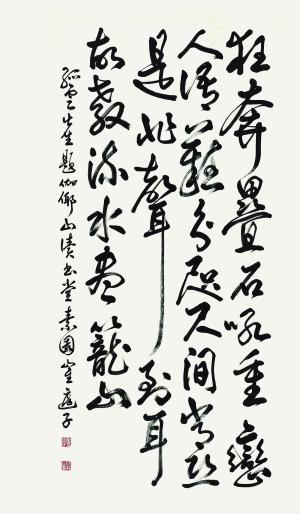 狂奔疊石吼重巒
人語難分咫尺間常恐
是非聲到耳
故教流水盡籠山
孤雲先生題伽倻山讀書堂 素園 崔